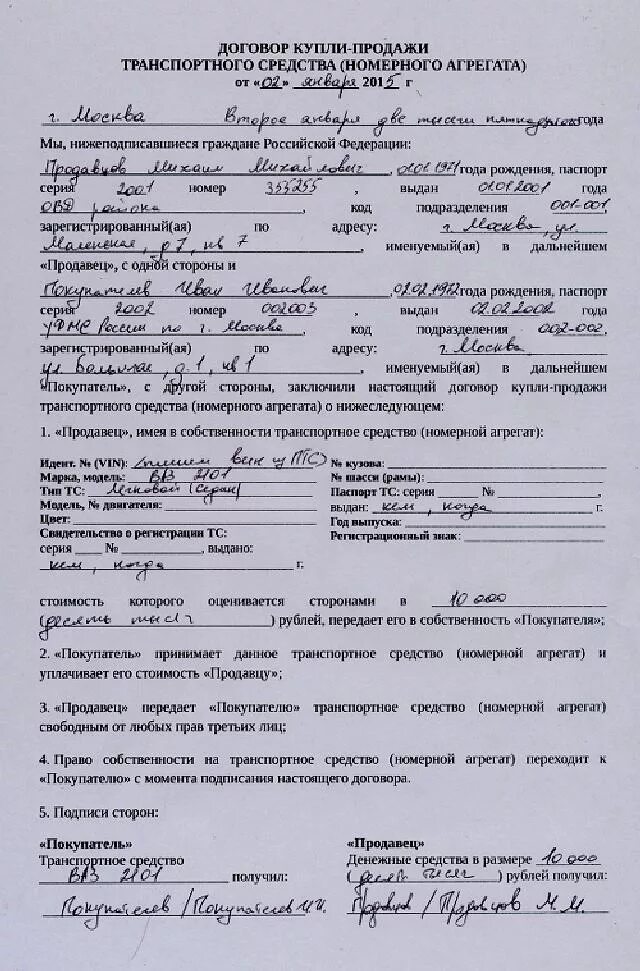 ДОГОВОР КУПЛИ-ПРОДАЖИ
ТРАНСПОРТНОГО СРЕДСТВА (НОМЕРНОГО АГРЕГАТА)
от «02» января 2015 г
г. Москва Второе января две тысячи пятнадцатого года
Мы, нижеподписавшиеся граждане Российской Федерации:
Продавцов Михаил Михайлович, 01.01.1971 года рождения, паспорт
серия 2001 номер 355255, выдан 01.01.2001 года
ОВД района, код подразделения 001-001,
зарегистрированный(ая) по адресу: г. Москва, ул.
Маленькая, д 7, кв 7, именуемый(ая) в дальнейшем
«Продавец», с одной стороны и
Покупателев Иван Иванович, 02.02.1972 года рождения, паспорт
серия 2002 номер 002003, выдан 02.02.2002 года
УФМС России по г. Москва, код подразделения 002-002,
зарегистрированный(ая) по адресу: г. Москва
ул Большая, д. 1, кв 1, именуемый(ая) в дальнейшем
«Покупатель», с другой стороны, заключили настоящий договор купли-продажи
транспортного средства (номерного агрегата) о нижеследующем:
1. «Продавец», имея в собственности транспортное средство (номерной агрегат):
Идент. № (VIN): (пишем вин из ПТС) № кузова:
Марка, модель: ВАЗ 2101 № шасси (рамы):
Тип ТС: Легковой (Седан) Паспорт ТС: серия № ,
Модель, № двигателя: выдан: кем, когда г.
Цвет: Год выпуска:
Свидетельство о регистрации ТС: Регистрационный знак :
серия № , выдано:
кем, когда г.
стоимость которого оценивается сторонами в 10 000
(десять тысяч) рублей, передает его в собственность «Покупателя»;
2. «Покупатель» принимает данное транспортное средство (номерной агрегат) и
уплачивает его стоимость «Продавцу»;
3. «Продавец» передает «Покупателю» транспортное средство (номерной агрегат)
свободным от любых прав третьих лиц;
4. Право собственности на транспортное средство (номерной агрегат) переходит к
«Покупателю» с момента подписания настоящего договора.
5. Подписи сторон:
«Покупатель» «Продавец»
Транспортное средство Денежные средства в размере 10 000
ВАЗ 2101 получил: (десять тысяч) рублей получил:
Покупателев / Покупателев И.И. Продавцов / Продавцов М.М.